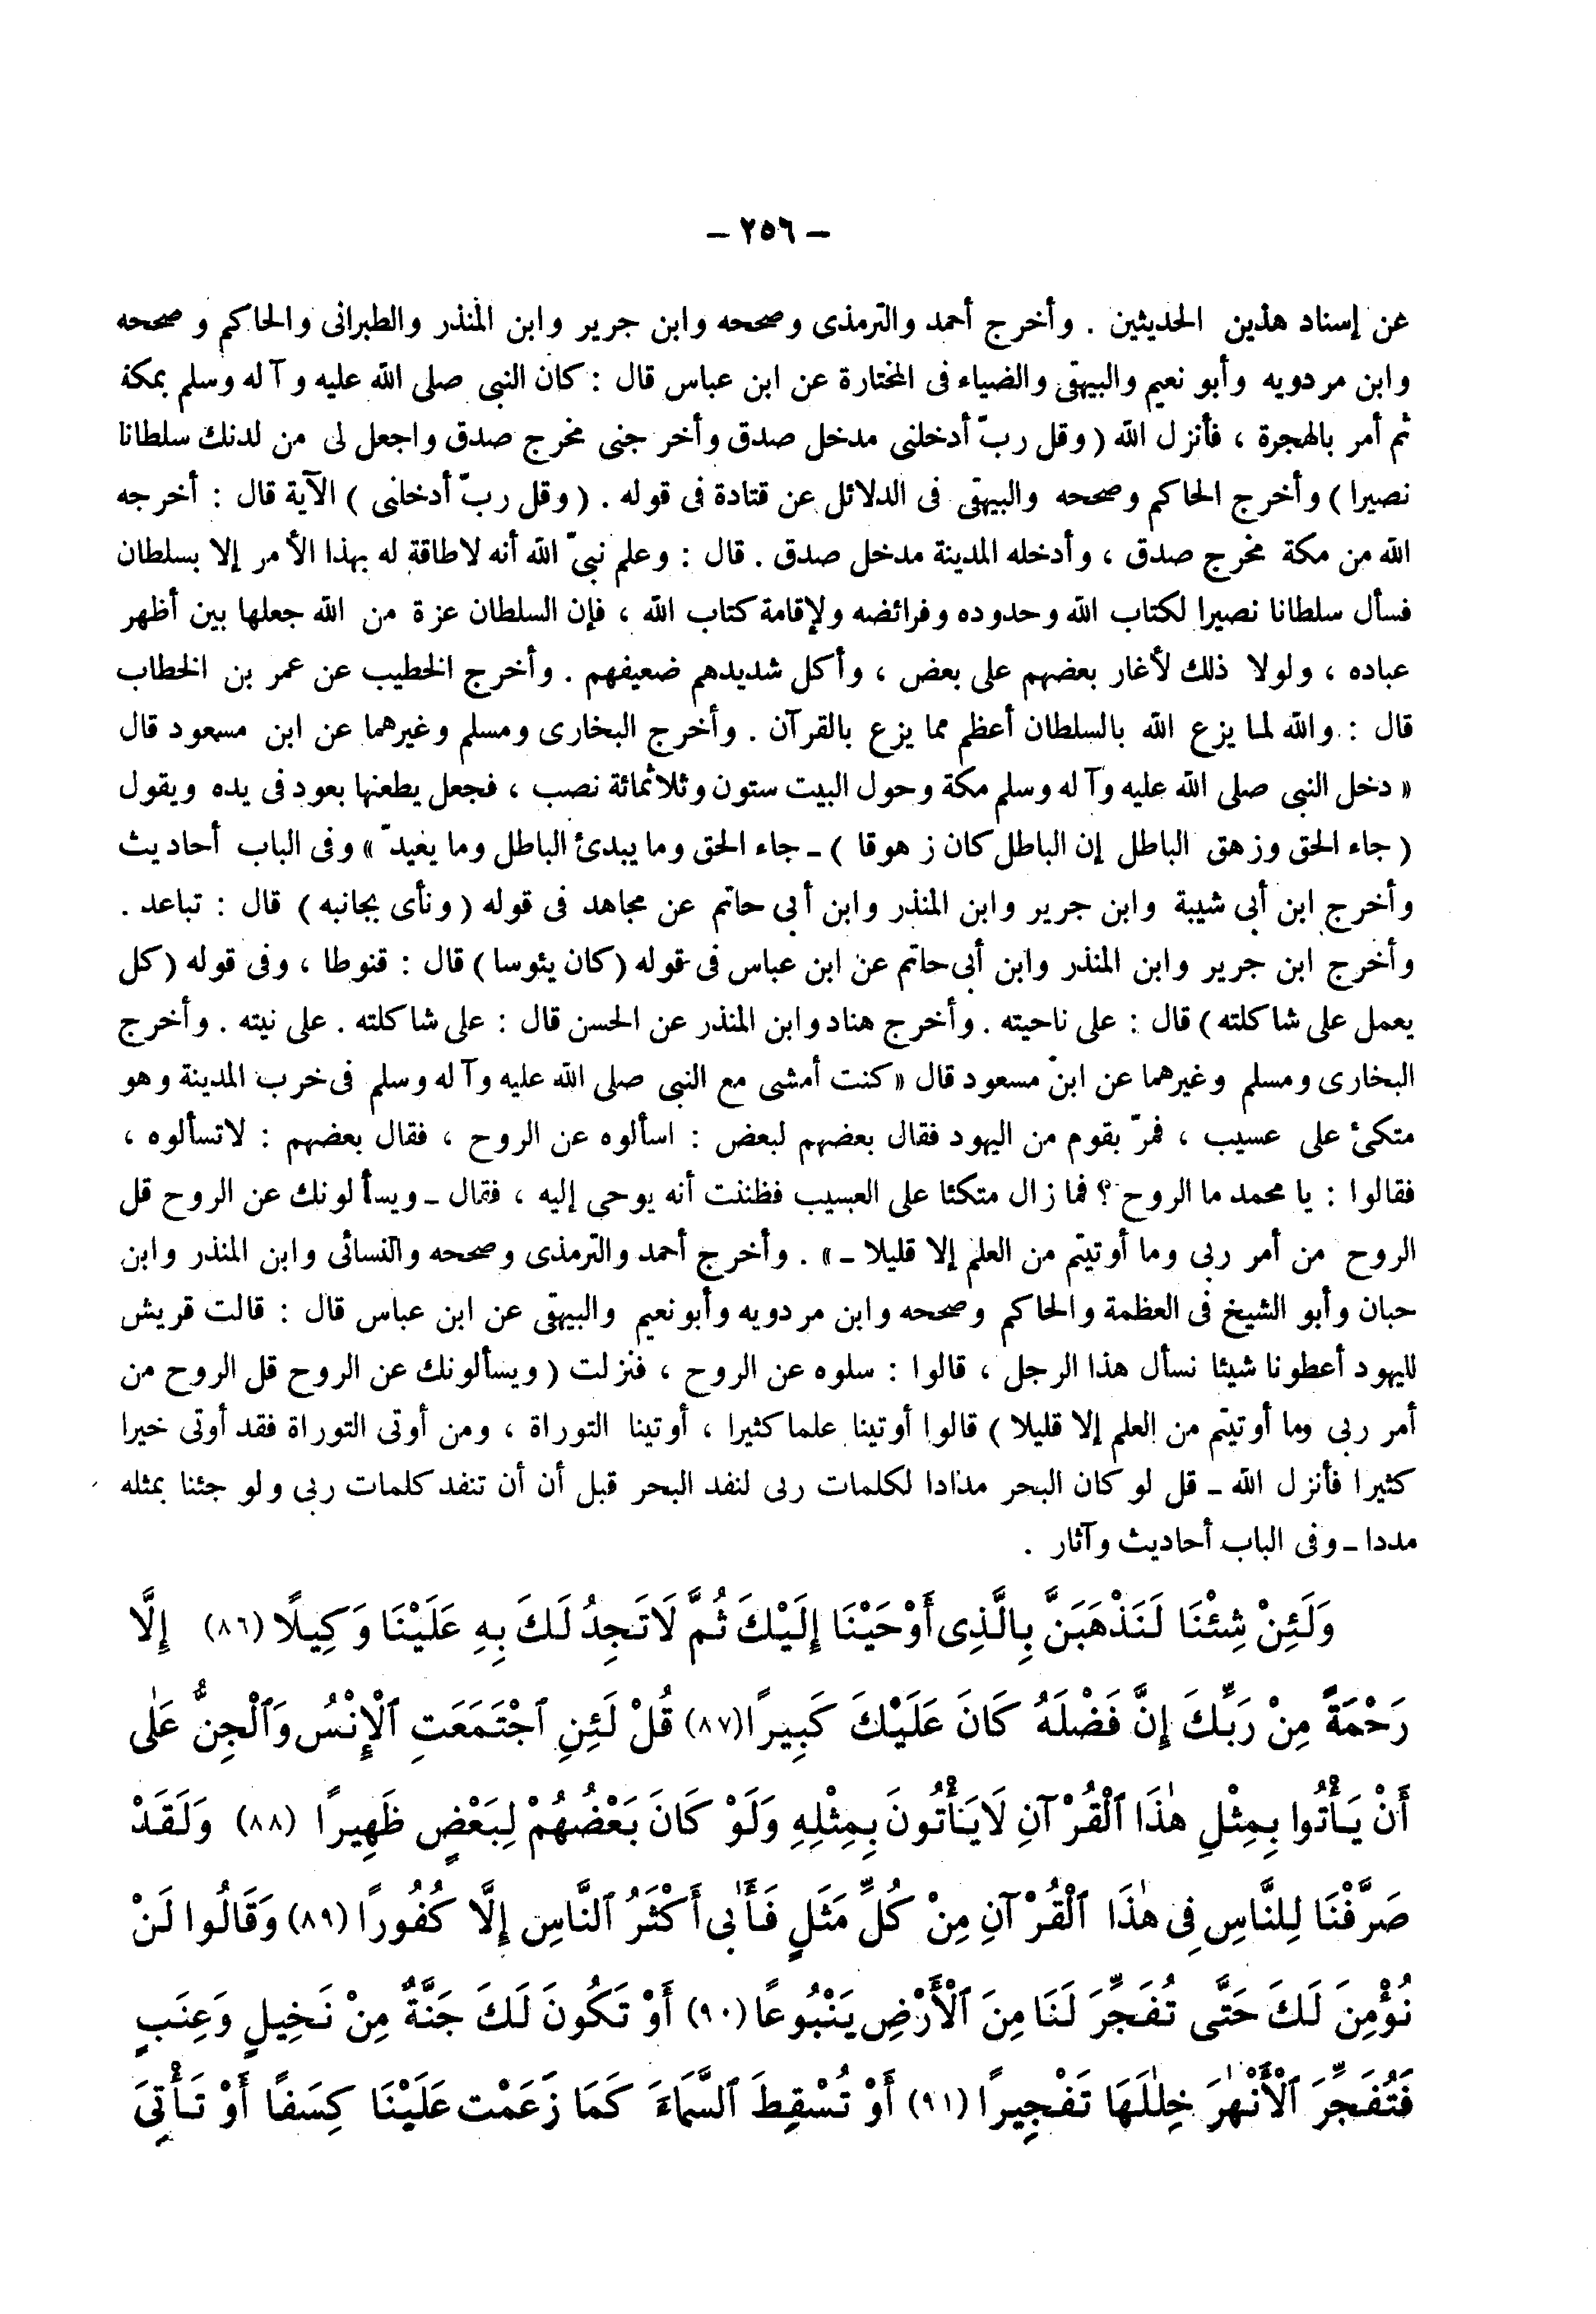 – ٢٥٦ –
عن إسناد هذين الحديثين . وأخرج أحمد والترمذى وصححه وابن جرير وابن المنذر والطبرانى والحاكم وصححه
وابن مردويه وأبو نعيم والبيهقى والضياء فى المختارة عن ابن عباس قال : كان النبى صلى الله عليه وآله وسلم بمكة
ثم أمر بالهجرة ، فأنزل الله ( وقل ربّ أدخلنى مدخل صدق وأخرجنى مخرج صدق واجعل لى من لدنك سلطانا
نصيرا ) وأخرج الحاكم وصححه والبيهقى فى الدلائل عن قتادة فى قوله . ( وقل ربّ أدخلنى ) الآية قال : أخرجه
الله من مكة مخرج صدق ، وأدخله المدينة مدخل صدق . قال : وعلم نبىّ الله أنه لاطاقة له بهذا الأمر إلا بسلطان
فسأل سلطانا نصيرا لكتاب الله وحدوده وفرائضه ولإقامة كتاب الله ، فإن السلطان عزة من الله جعلها بين أظهر
عباده ، ولولا ذلك لأغار بعضهم على بعض ، وأكل شديدهم ضعيفهم . وأخرج الخطيب عن عمر بن الخطاب
قال : والله لما يزع الله بالسلطان أعظم مما يزع بالقرآن . وأخرج البخارى ومسلم وغيرهما عن ابن مسعود قال
« دخل النبى صلى الله عليه وآله وسلم مكة وحول البيت ستون وثلاثمائة نصب ، فجعل يطعنها بعود فى يده ويقول
( جاء الحق وزهق الباطل إن الباطل كان زهوقا ) ـ جاء الحق وما يبدئ الباطل وما يعيد » وفى الباب أحاديث
وأخرج ابن أبى شيبة وابن جرير وابن المنذر وابن أبى حاتم عن مجاهد فى قوله ( ونأى بجانبه ) قال : تباعد .
وأخرج ابن جرير وابن المنذر وابن أبى حاتم عن ابن عباس فى قوله ( كان يئوسا ) قال : قنوطا ، وفى قوله ( كل
يعمل على شاكلته ) قال : على ناحيته . وأخرج هناد وابن المنذر عن الحسن قال : على شاكلته . على نيته . وأخرج
البخارى ومسلم وغيرهما عن ابن مسعود قال « كنت أمشى مع النبى صلى الله عليه وآله وسلم فى خرب المدينة وهو
متكئ على عسيب ، فمرّ بقوم من اليهود فقال بعضهم لبعض : اسألوه عن الروح ، فقال بعضهم : لاتسألوه ،
فقالوا : يا محمد ما الروح ؟ فما زال متكئا على العسيب فظننت أنه يوحى إليه ، فقال ـ ويسألونك عن الروح قل
الروح من أمر ربى وما أوتيتم من العلم إلا قليلا ـ » . وأخرج أحمد والترمذى وصححه والنسائى وابن المنذر وابن
حبان وأبو الشيخ فى العظمة والحاكم وصححه وابن مردويه وأبو نعيم والبيهقى عن ابن عباس قال : قالت قريش
لليهود أعطونا شيئا نسأل هذا الرجل ، قالوا : سلوه عن الروح ، فنزلت ( ويسألونك عن الروح قل الروح من
أمر ربى وما أوتيتم من العلم إلا قليلا ) قالوا أوتينا علما كثيرا ، أوتينا التوراة ، ومن أوتى التوراة فقد أوتى خيرا
كثيرا فأنزل الله ـ قل لو كان البحر مدادا لكلمات ربى لنفد البحر قبل أن أن تنفد كلمات ربى ولو جئنا بمثله
مددا ـ وفى الباب أحاديث وآثار .
وَلَئِنْ شِئْنَا لَنَذْهَبَنَّ بِالَّذِى أَوْحَيْنَا إِلَيْكَ ثُمَّ لَاتَجِدُ لَكَ بِهِ عَلَيْنَا وَكِيلًا (٨٦) إِلَّا
رَحْمَةً مِنْ رَبِّكَ إِنَّ فَضْلَهُ كَانَ عَلَيْكَ كَبِيرًا (٨٧) قُلْ لَئِنِ ٱجْتَمَعَتِ ٱلْإِنْسُ وَٱلْجِنُّ عَلَى
أَنْ يَأْتُوا بِمِثْلِ هٰذَا ٱلْقُرْآنِ لَايَأْتُونَ بِمِثْلِهِ وَلَوْ كَانَ بَعْضُهُمْ لِبَعْضٍ ظَهِيرًا (٨٨) وَلَقَدْ
صَرَّفْنَا لِلنَّاسِ فِى هٰذَا ٱلْقُرْآنِ مِنْ كُلِّ مَثَلٍ فَأَبٰى أَكْثَرُ ٱلنَّاسِ إِلَّا كُفُورًا (٨٩) وَقَالُوا لَنْ
نُؤْمِنَ لَكَ حَتَّى تُفَجِّرَ لَنَا مِنَ ٱلْأَرْضِ يَنْبُوعًا (٩٠) أَوْ تَكُونَ لَكَ جَنَّةٌ مِنْ نَخِيلٍ وَعِنَبٍ
فَتُفَجِّرَ ٱلْأَنْهٰرَ خِلٰلَهَا تَفْجِيرًا (٩١) أَوْ تُسْقِطَ ٱلسَّمَاءَ كَمَا زَعَمْت عَلَيْنَا كِسَفًا أَوْ تَأْتِىَ